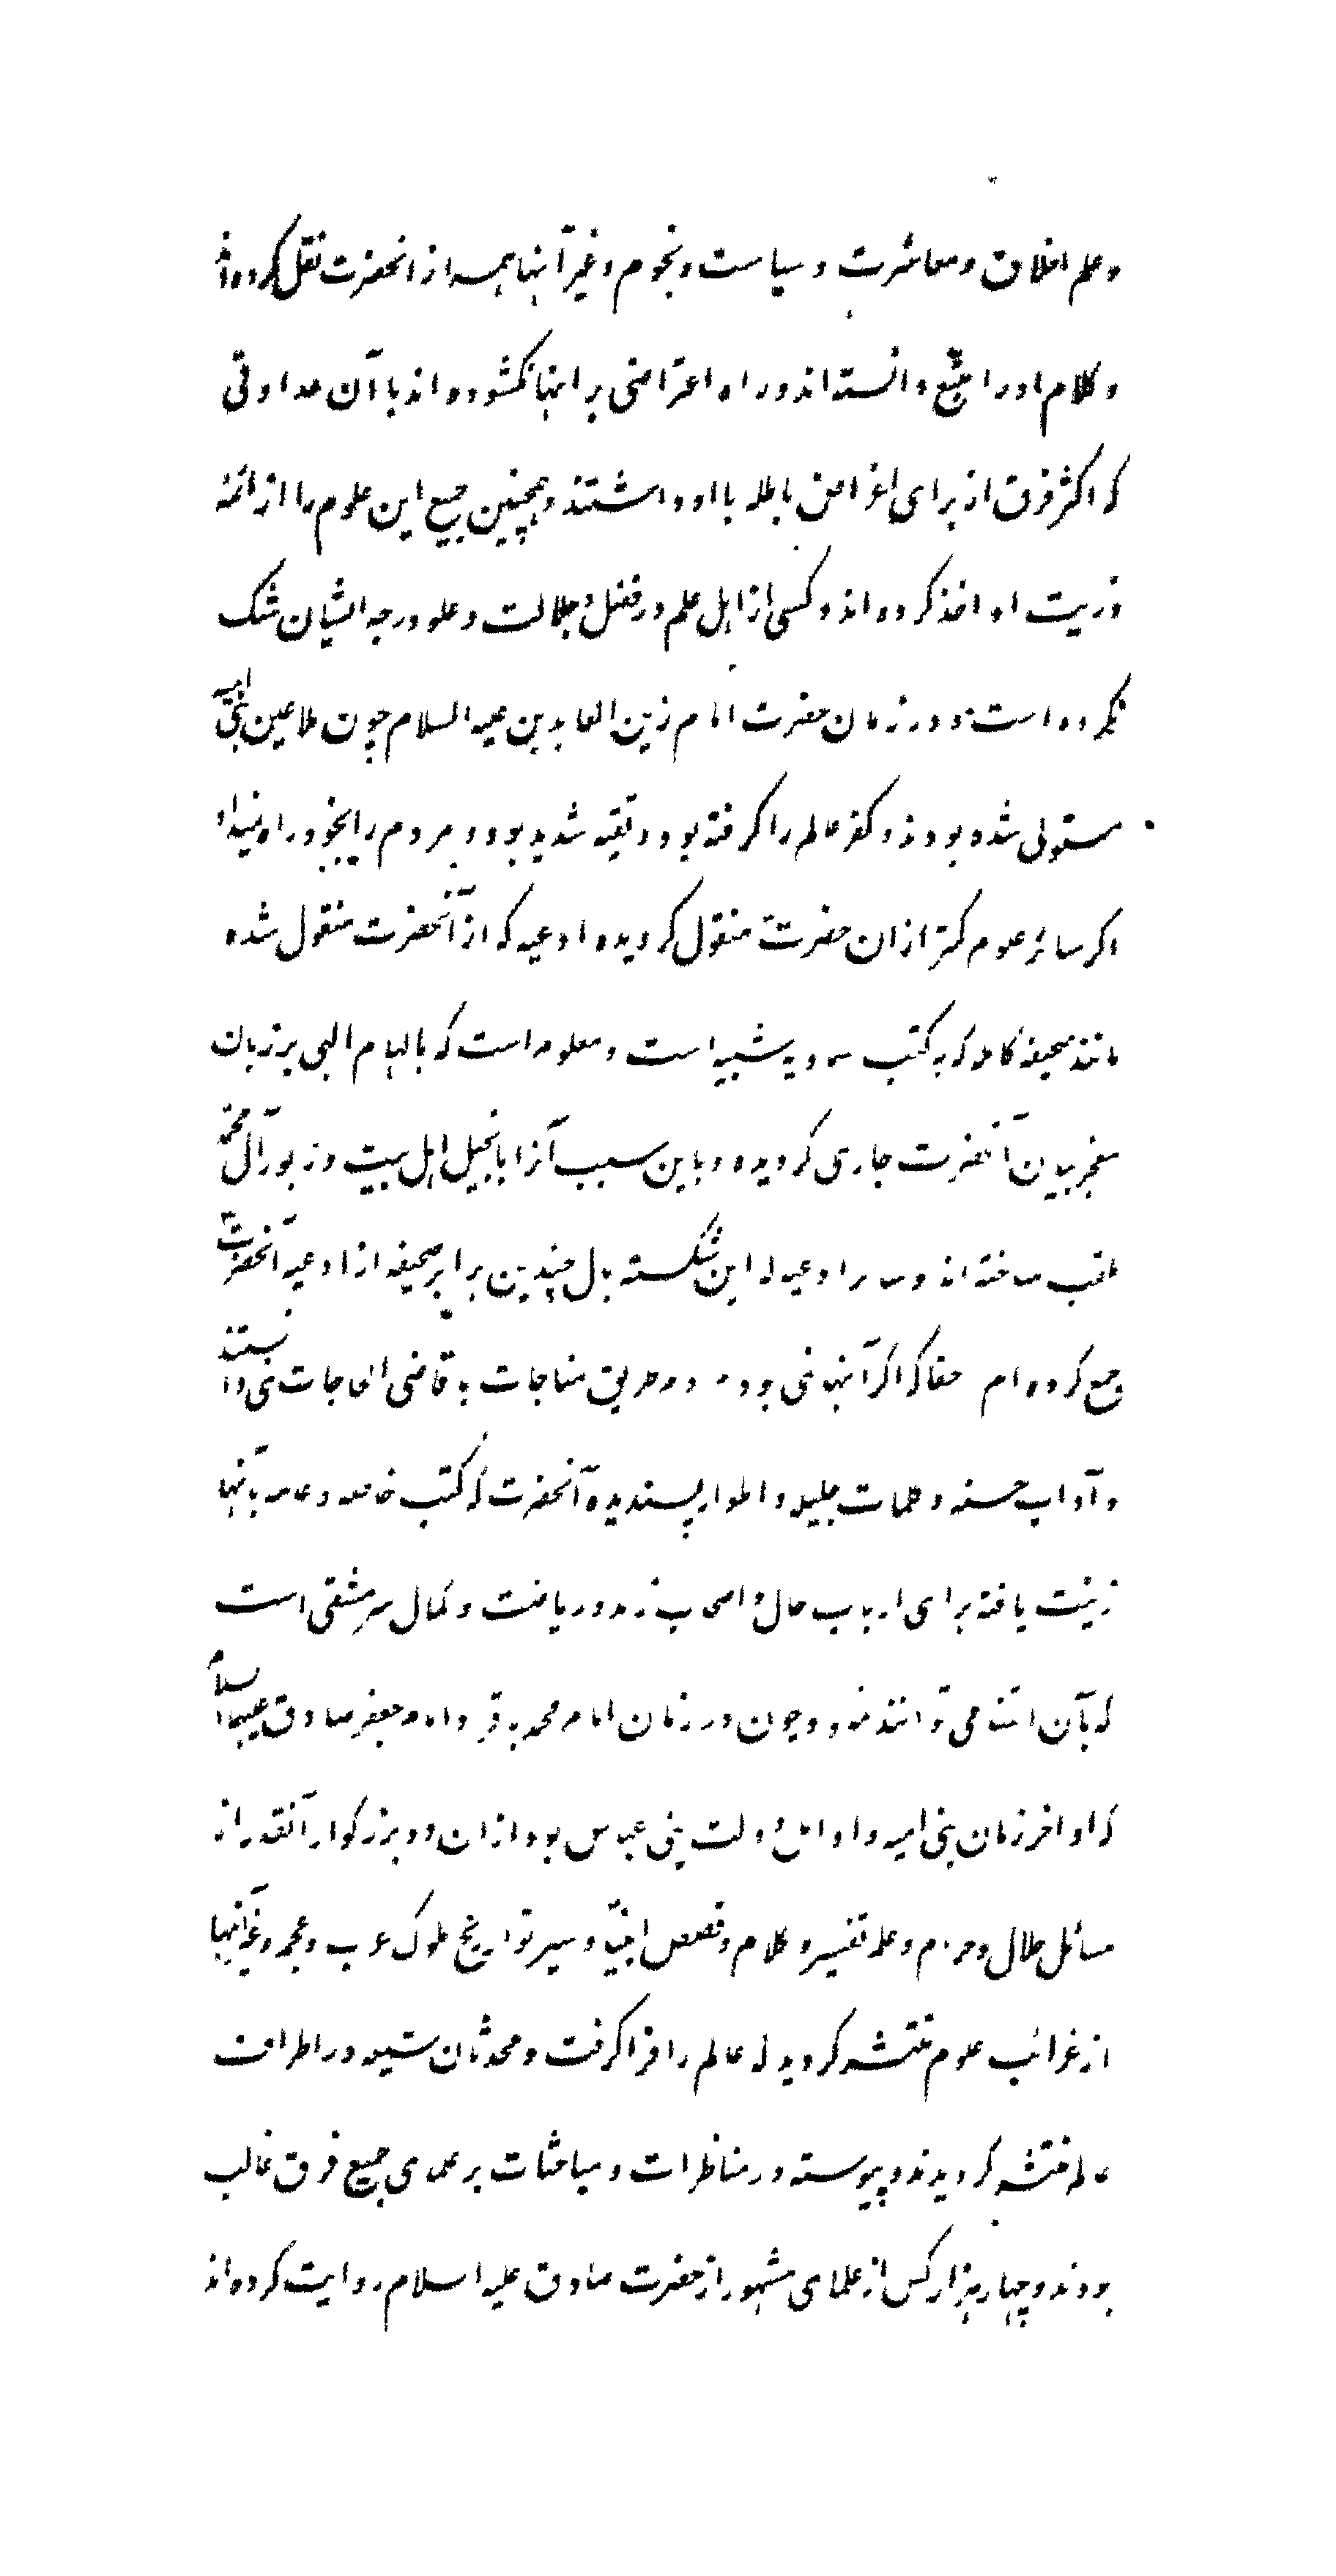 و علم اخلاق و معاشرت و سیاست و نجوم و غیر آنها همه از انحضرت نقل کرده‌اند
و کلام او را متبع دانسته اند و راه اعتراضی بر اینها نکشوده اند با آن عداوتی
که اکثر فرق از برای اغراض باطله با او داشتند و همچنین جمیع این علوم را از ائمهٔ
ذریت او اخذ کرده اند و کسی از اهل علم در فضل و جلالت و علو درجه ایشان شک
نکرده است و در زمان حضرت امام زین العابدین علیه السلام چون ملاعین بنی امیه
مستولی شده بودند و کفر عالم را کرفته بود و تقیه شدید بود و مردم را بخود راه نمیداد
اکر سائر علوم کمتر از ان حضرت منقول کردیده ادعیه که از آنحضرت منقول شده
مانند صحیفه کامله که به کتب سماویه شبیه است و معلوم است که بالهام الهی بر زبان
معجز بیان آنحضرت جاری کردیده و باین سبب آنرا بانجیل اهل بیت و زبور آل محمد
ملقب ساخته اند و سایر ادعیه که این شکسته بال چندین برابر صحیفه از ادعیه آنحضرت
جمع کرده ام حقا که اکر آنها نمی بود مردم طریق مناجات به قاضی الحاجات نمی دانستند
و آداب حسنه و کلمات جلیله و اطوار پسندیده آنحضرت که کتب خاصه و عامه به آنها
زینت یافته برای ارباب حال و اصحاب زهد و ریاضت و کمال سرمشقی است
که بآن اقتدا می توانند نمود و چون در زمان امام محمد باقر و امام جعفر صادق علیهما السلام
که اواخر زمان بنی امیه و اوائل دولت بنی عباس بود از ان دو بزرکوار آنقدر از
مسائل حلال و حرام و علم تفسیر و کلام و قصص انبیا و سیر و تواریخ ملوک عرب و عجم و غیر آنها
از غرائب علوم منتشر کردید که عالم را فرا کرفت و محدثان شیعه در اطراف
عالم منتشر کردیدند و پیوسته در مناظرات و مباحثات بر علمای جمیع فرق غالب
بودند و چهار هزار کس از علمای مشهور از حضرت صادق علیه السلام روایت کرده‌اند